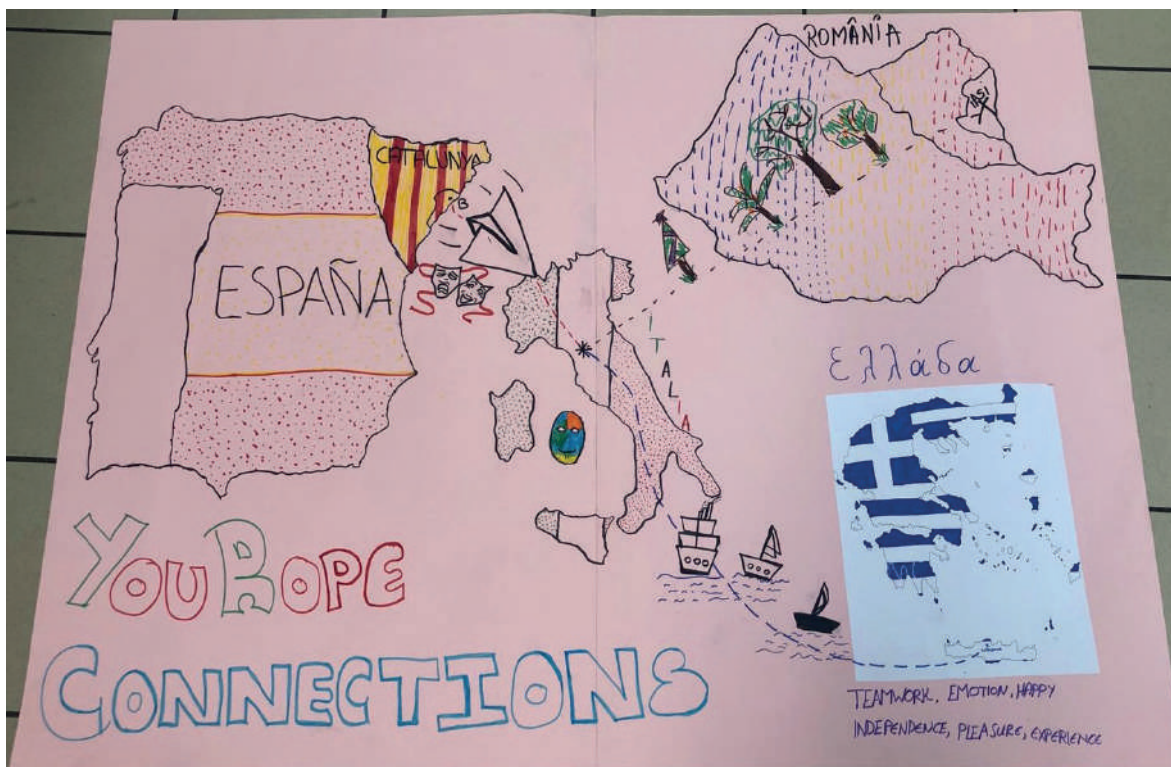 ROMÂNÎA
IASI
CATALUNYA
B
ESPAÑA
ITALIA
Ελλάδα
YOUROPE
CONNECTIONS
TEAMWORK, EMOTION, HAPPY
INDEPENDENCE, PLEASURE, EXPERIENCE